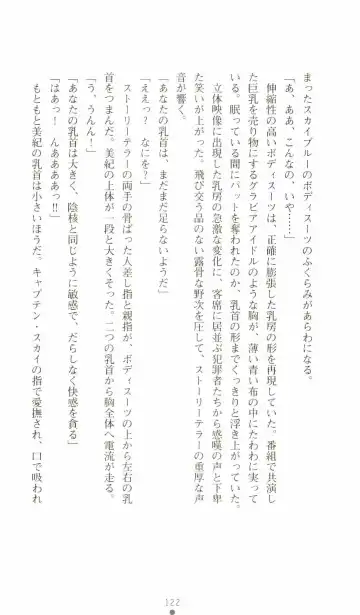 まったスカイブルーのボディスーツのふくらみがあらわになる。
「あ、ああ、こんなの、いや……」
伸縮性の高いボディスーツは、正確に膨張した乳房の形を再現していた。番組で共演し
た巨乳を売り物にするグラビアアイドルのような胸が、薄い青い布の中にたわわに実って
いる。眠っている間にパットを奪われたのか、乳首の形までくっきりと浮き上がっていた。
立体映像に出現した乳房の急激な変化に、客席に居並ぶ犯罪者たちから感嘆の声と下卑
た笑いが上がった。飛び交う品のない露骨な野次を圧して、ストーリーテラーの重厚な声
音が響く。
「あなたの乳首は、まだまだ足らないようだ」
「ええっ?なにを?」
ストーリーテラーの両手の骨ばった人差し指と親指が、ボディスーツの上から左右の乳
首をつまんだ。美紀の上体が一段と大きくそった。二つの乳首から胸全体へ電流が走る。
「う、うんん!」
「あなたの乳首は大きく、陰核と同じように敏感で、だらしなく快感を貪る」
「はあっ!んああああっ!!」
もともと美紀の乳首は小さいほうだ。キャプテン・スカイの指で愛撫され、口で吸われ
122